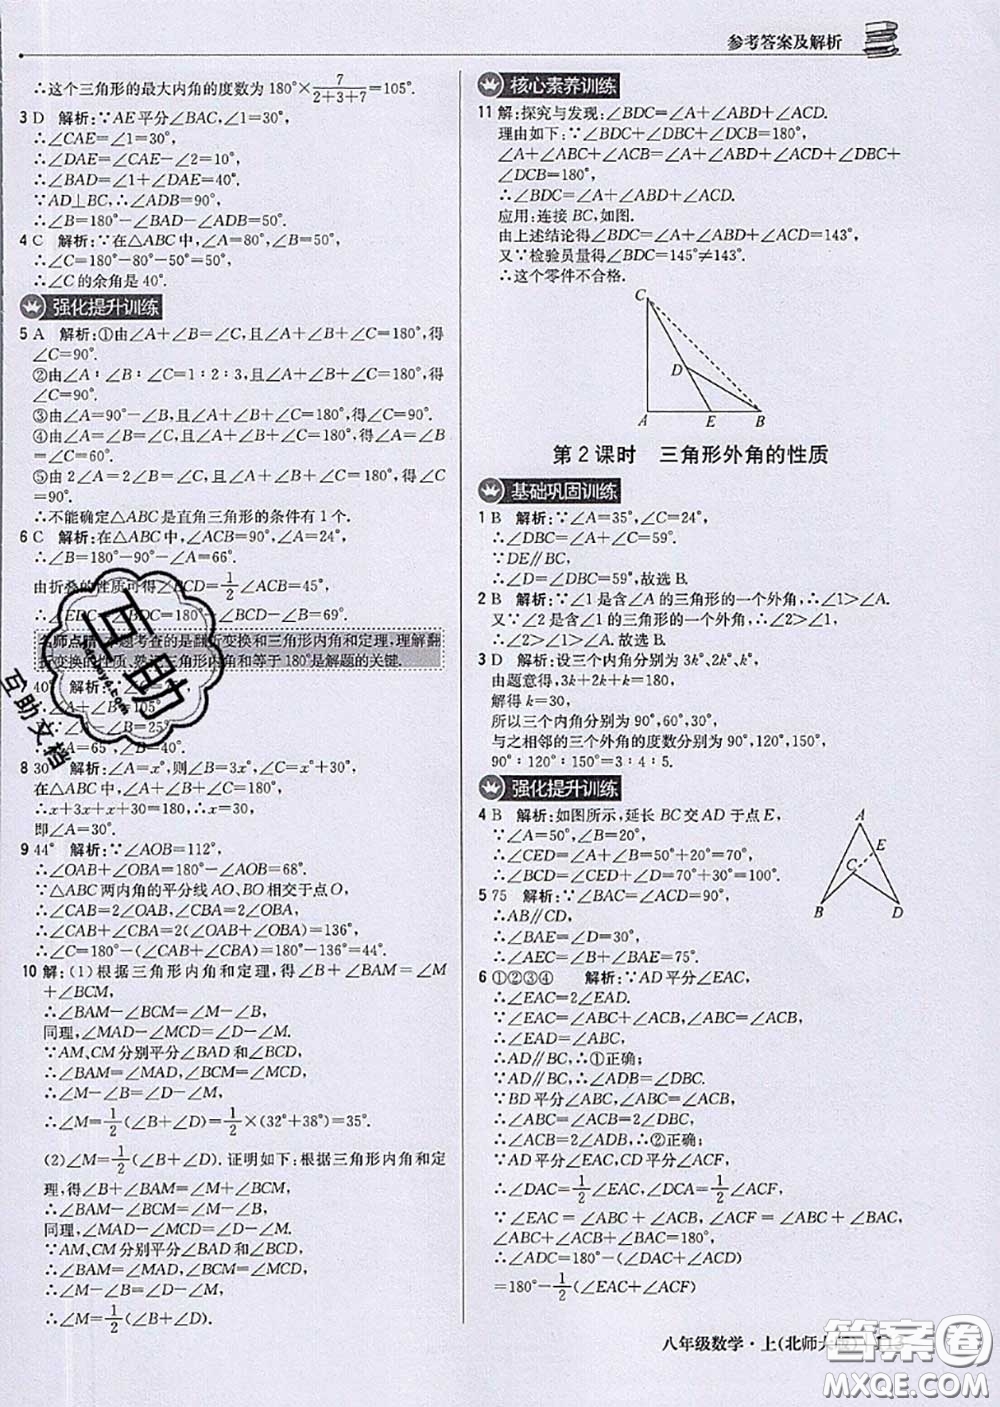 参考答案及解析
∴这个三角形的最大内角的度数为180°×7/(2+3+7)=105°.
3 D 解析:∵AE平分∠BAC,∠1=30°,
∴∠CAE=∠1=30°,
∴∠DAE=∠CAE-∠2=10°,
∴∠BAD=∠1+∠DAE=40°.
∵AD⊥BC,∴∠ADB=90°,
∴∠B=180°-∠BAD-∠ADB=50°.
4 C 解析:∵在△ABC中,∠A=80°,∠B=50°,
∴∠C=180°-80°-50°=50°,
∴∠C的余角是40°.
强化提升训练
5 A 解析:①由∠A+∠B=∠C,且∠A+∠B+∠C=180°,得
∠C=90°.
②由∠A∶∠B∶∠C=1∶2∶3,且∠A+∠B+∠C=180°,得
∠C=90°.
③由∠A=90°-∠B,且∠A+∠B+∠C=180°,得∠C=90°.
④由∠A=∠B=∠C,且∠A+∠B+∠C=180°,得∠A=∠B=
∠C=60°.
⑤由2∠A=2∠B=∠C,且∠A+∠B+∠C=180°,得∠C=90°.
∴不能确定△ABC是直角三角形的条件有1个.
6 C 解析:在△ABC中,∠ACB=90°,∠A=24°,
∴∠B=180°-90°-∠A=66°.
由折叠的性质可得∠BCD=1/2∠ACB=45°,
∴∠BDC=180°-∠BCD-∠B=69°.
名师点睛 本题考查的是翻折变换和三角形内角和定理,理解翻
折变换的性质、熟记三角形内角和等于180°是解题的关键.
40° 解析:∵∠C=
∴∠A+∠B=105°
∵∠A-∠B=25°
∴∠A=65°,∠B=40°.
8 30 解析:∠A=x°,则∠B=3x°,∠C=x°+30°.
在△ABC中,∠A+∠B+∠C=180°,
∴x+3x+x+30=180,∴x=30,
即∠A=30°.
9 44° 解析:∵∠AOB=112°,
∴∠OAB+∠OBA=180°-∠AOB=68°.
∵△ABC两内角的平分线AO、BO相交于点O,
∴∠CAB=2∠OAB,∠CBA=2∠OBA,
∴∠CAB+∠CBA=2(∠OAB+∠OBA)=136°,
∴∠C=180°-(∠CAB+∠CBA)=180°-136°=44°.
10 解:(1)根据三角形内角和定理,得∠B+∠BAM=∠M
+∠BCM,
∴∠BAM-∠BCM=∠M-∠B,
同理,∠MAD-∠MCD=∠D-∠M.
∵AM、CM分别平分∠BAD和∠BCD,
∴∠BAM=∠MAD,∠BCM=∠MCD,
∴∠M-∠B=∠D-∠M,
∴∠M=1/2(∠B+∠D)=1/2×(32°+38°)=35°.
(2)∠M=1/2(∠B+∠D).证明如下:根据三角形内角和定
理,得∠B+∠BAM=∠M+∠BCM,
∴∠BAM-∠BCM=∠M-∠B,
同理,∠MAD-∠MCD=∠D-∠M.
∵AM、CM分别平分∠BAD和∠BCD,
∴∠BAM=∠MAD,∠BCM=∠MCD,
∴∠M-∠B=∠D-∠M,
∴∠M=1/2(∠B+∠D).
核心素养训练
11 解:探究与发现:∠BDC=∠A+∠ABD+∠ACD.
理由如下:∵∠BDC+∠DBC+∠DCB=180°,
∠A+∠ABC+∠ACB=∠A+∠ABD+∠ACD+∠DBC+
∠DCB=180°,
∴∠BDC=∠A+∠ABD+∠ACD.
应用:连接BC,如图.
由上述结论得∠BDC=∠A+∠ABD+∠ACD=143°,
又∵检验员量得∠BDC=145°≠143°,
∴这个零件不合格.
C
D
A E B
第2课时 三角形外角的性质
基础巩固训练
1 B 解析:∵∠A=35°,∠C=24°,
∴∠DBC=∠A+∠C=59°.
∵DE∥BC,
∴∠D=∠DBC=59°,故选B.
2 B 解析:∵∠1是含∠A的三角形的一个外角,∴∠1>∠A.
又∵∠2是含∠1的三角形的一个外角,∴∠2>∠1,
∴∠2>∠1>∠A.故选B.
3 D 解析:设三个内角分别为3k°、2k°、k°,
由题意得:3k+2k+k=180,
解得k=30,
所以三个内角分别为90°,60°,30°,
与之相邻的三个外角的度数分别为90°,120°,150°,
90°∶120°∶150°=3∶4∶5.
强化提升训练
4 B 解析:如图所示,延长BC交AD于点E,
∵∠A=50°,∠B=20°,
∴∠CED=∠A+∠B=50°+20°=70°,
∴∠BCD=∠CED+∠D=70°+30°=100°.
A
E
C
B D
5 75 解析:∵∠BAC=∠ACD=90°,
∴AB∥CD,
∴∠BAE=∠D=30°,
∴∠AEC=∠B+∠BAE=75°.
6 ①②③④ 解析:∵AD平分∠EAC,
∴∠EAC=2∠EAD.
∵∠EAC=∠ABC+∠ACB,∠ABC=∠ACB,
∴∠EAD=∠ABC,
∴AD∥BC,∴①正确;
∵AD∥BC,∴∠ADB=∠DBC.
∵BD平分∠ABC,∠ABC=∠ACB,
∴∠ABC=∠ACB=2∠DBC,
∴∠ACB=2∠ADB,∴②正确;
∵AD平分∠EAC,CD平分∠ACF,
∴∠DAC=1/2∠EAC,∠DCA=1/2∠ACF,
∵∠EAC=∠ABC+∠ACB,∠ACF=∠ABC+∠BAC,
∠ABC+∠ACB+∠BAC=180°,
∴∠ADC=180°-(∠DAC+∠ACD)
=180°-1/2(∠EAC+∠ACF)
八年级数学·上(北师大版)
互助
互助文档
答案圈
MXQE.COM